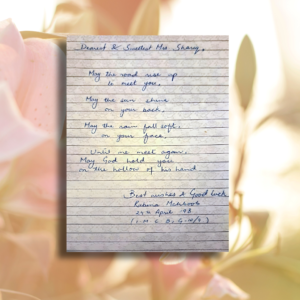 Dearest & Sweetest Mrs
May the road rise up
to meet you.
May the sun shine
on your back.
May the rain fall soft,
on your face.
Until we meet again,
May God hold you
in the hollow of his hand
Best wishes & Good luck
24th April 98